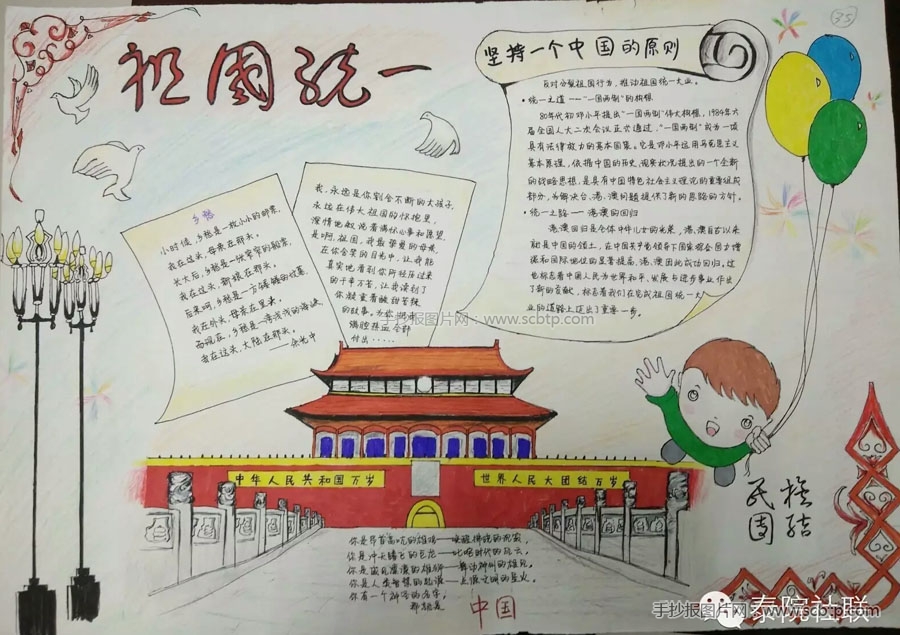 祖國統一
35
坚持一个中国的原则
反对分裂祖国行为,推动祖国统一大业。
•统一之道——"一国两制"的构想
80年代初邓小平提出"一国两制"伟大构想,1984年六
届全国人大二次会议正式通过,"一国两制"成为一项
具有法律效力的基本国策。它是邓小平运用马克思主义
基本原理,依据中国的历史、现实状况提出的一个全新
的战略思想,是具有中国特色社会主义理论的重要组成
部分,为解决台、港、澳问题提供了新的思路的方针。
•统一之路——港澳的回归
港澳回归是全体中华儿女的光荣,港、澳自古以来
就是中国的领土,在中国共产党领导下国家综合国力增
强和国际地位的显著提高,港、澳因此成功回归,这
也标志着中国人民为世界和平、发展与进步事业作出
了新的贡献,标志着我们在完成祖国统一大
业的道路上迈出了重要一步。
乡愁
小时候,乡愁是一枚小小的邮票,
我在这头,母亲在那头。
长大后,乡愁是一张窄窄的船票,
我在这头,新娘在那头。
后来啊,乡愁是一方矮矮的坟墓,
我在外头,母亲在里头。
而现在,乡愁是一湾浅浅的海峡,
我在这头,大陆在那头。
——余光中
我,永远是你割舍不断的女孩子,
永远在伟大祖国的怀抱里,
深情地叙说着满怀心事和愿望,
是啊,祖国,我最挚爱的母亲
在你含笑的目光中,让我能
真实地看到你所经历过来
的千辛万苦,让我读到了
你凝重着酸甜苦辣
的故事。为你
满腔热血全部
付出……
手抄报图片网:www.scbtp.com
中华人民共和国万岁
世界人民大团结万岁
你是昂首高吭的雄鸡——唤醒拂晓的沉寂,
你是冲天腾飞的巨龙——叱咤时代的风云,
你是威风凛凛的雄狮——舞动神州的雄风,
你是人类智慧的起源——点燃文明的星火。
你有一个神圣的名字,
那就是
中国
民族
团结
手抄报图片网:www.scbtp.com
泰院社联